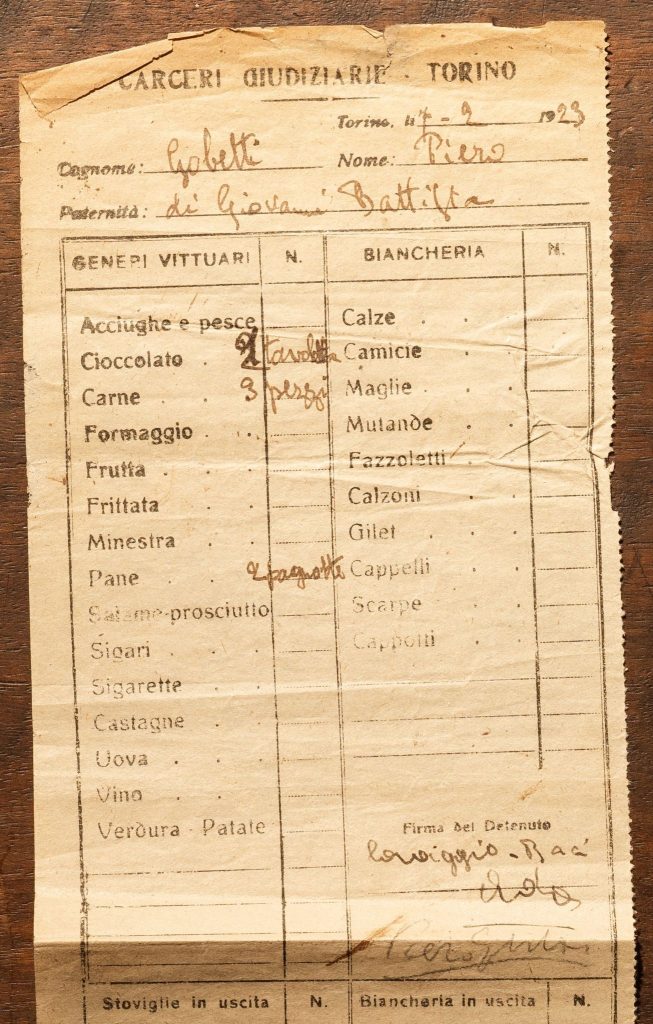 CARCERI GIUDIZIARIE - TORINO
Torino, li 7 - 2 1923
Cognome: Gobetti Nome: Piero
Paternità: di Giovanni Battista
GENERI VITTUARI N. BIANCHERIA N.
Acciughe e pesce Calze . .
Cioccolato . 2 tavolette Camicie . .
Carne . 3 pezzi Maglie . .
Formaggio . . Mutande . .
Frutta . . Fazzoletti .
Frittata . . Calzoni . .
Minestra . . Gilet . .
Pane . . 2 pagnotte Cappelli . .
Salame-prosciutto Scarpe . .
Sigari . . Cappotti . .
Sigarette . .
Castagne . .
Uova . .
Vino . .
Verdura - Patate
Firma del Detenuto
Coraggio - Baci
Ada
Stoviglie in uscita N. Biancheria in uscita N.